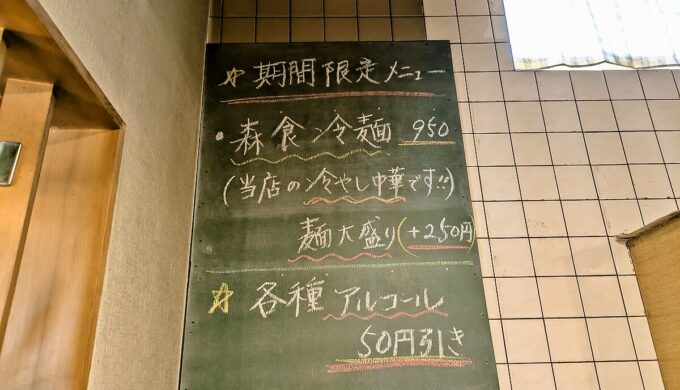 ☆期間限定メニュー
・森食冷麺 950
(当店の冷やし中華です!!)
麺大盛り(+250円)
☆各種アルコール
50円引き